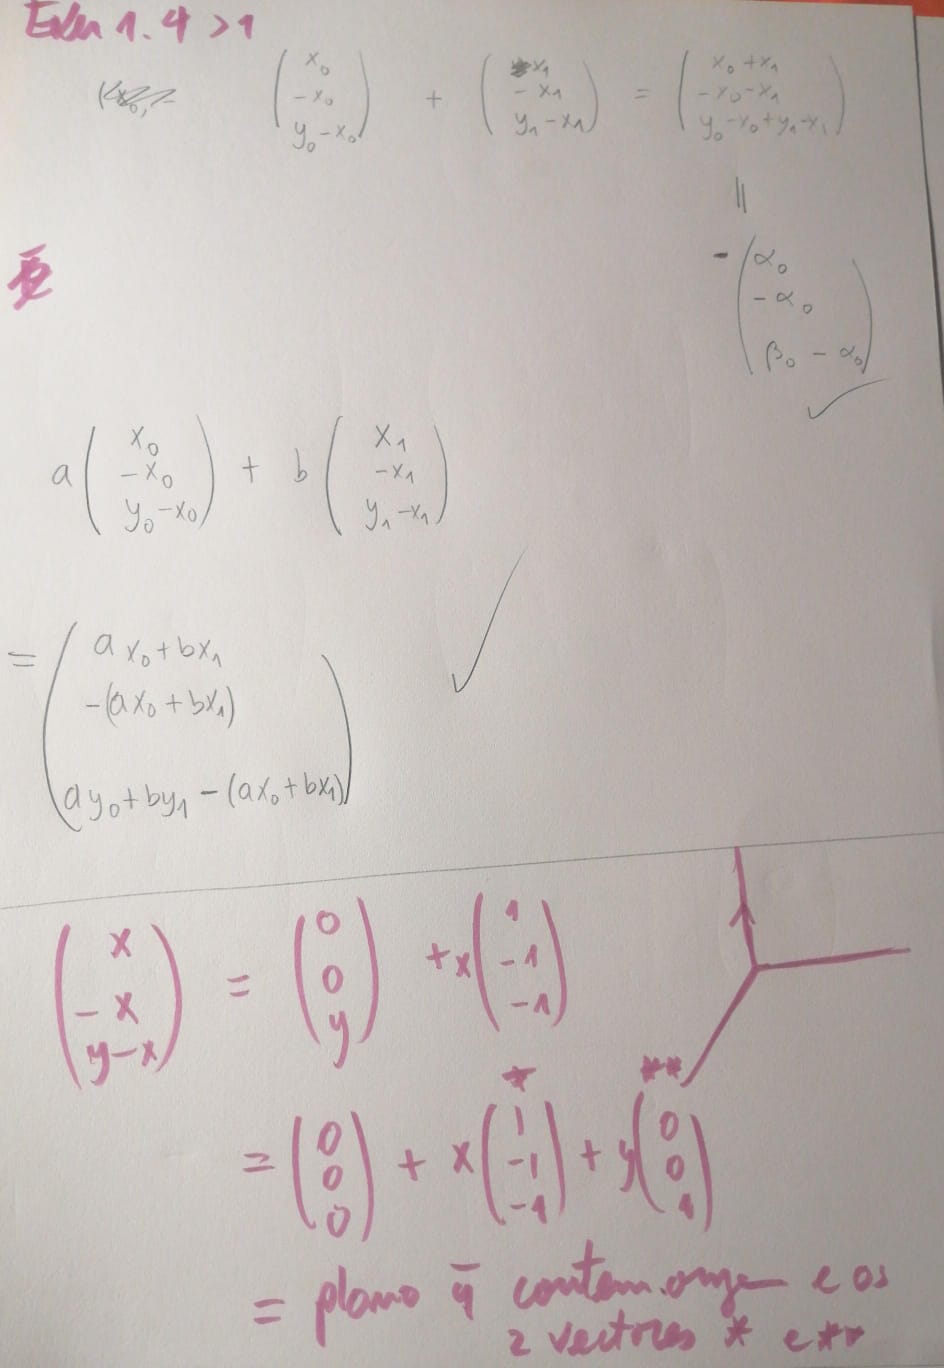 Exer 1.4 > 1
( x₀ ; - x₀ ; y₀ - x₀ ) + ( x₁ ; - x₁ ; y₁ - x₁ ) = ( x₀ + x₁ ; - x₀ - x₁ ; y₀ - x₀ + y₁ - x₁ )
||
- ( α₀ ; - α₀ ; β₀ - α₀ ) ✓
a ( x₀ ; - x₀ ; y₀ - x₀ ) + b ( x₁ ; - x₁ ; y₁ - x₁ )
= ( a x₀ + b x₁ ; - (a x₀ + b x₁) ; a y₀ + b y₁ - (a x₀ + b x₁) ) ✓
( x ; - x ; y - x ) = ( 0 ; 0 ; y ) + x ( 1 ; - 1 ; - 1 )
* **
= ( 0 ; 0 ; 0 ) + x ( 1 ; - 1 ; - 1 ) + y ( 0 ; 0 ; 1 )
= plano q̄ contem origem e os
2 vectores * e **